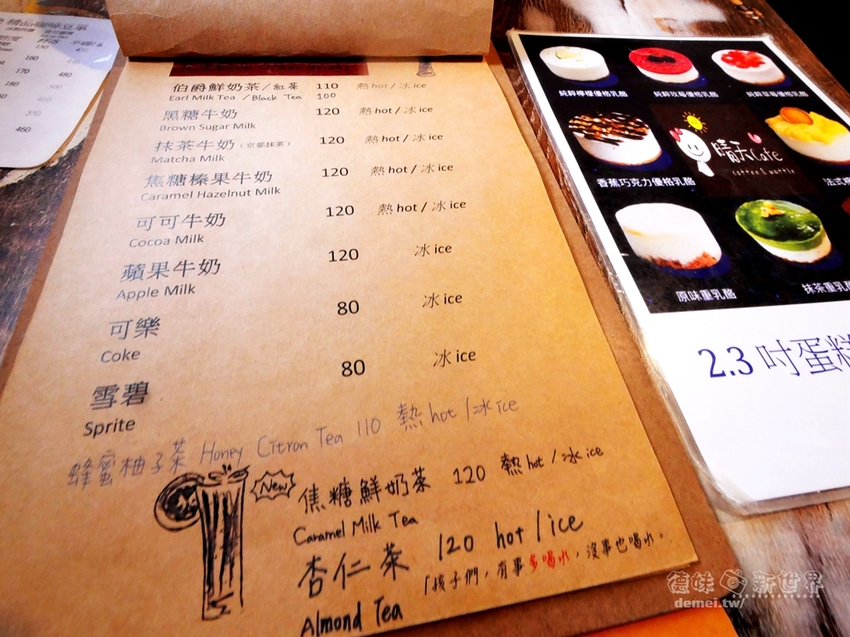 精品咖啡豆單
150
160
170
180
460
480
伯爵鮮奶茶/紅茶 110 熱hot/冰ice
Earl Milk Tea / Black Tea 100
黑糖牛奶 120 熱hot/冰ice
Brown Sugar Milk
抹茶牛奶(京都抹茶) 120 熱hot/冰ice
Matcha Milk
焦糖榛果牛奶 120 熱hot/冰ice
Caramel Hazelnut Milk
可可牛奶 120 熱hot/冰ice
Cocoa Milk
蘋果牛奶 120 冰ice
Apple Milk
可樂 80 冰ice
Coke
雪碧 80 冰ice
Sprite
蜂蜜柚子茶 Honey Citron Tea 110 熱hot/冰ice
New
焦糖鮮奶茶 120 熱hot/冰ice
Caramel Milk Tea
杏仁茶 120 hot/ice
Almond Tea
「孩子們,有事多喝水,沒事也喝水。
純粹檸檬優格乳酪
純粹草莓優格乳酪
香蕉巧克力優格乳酪
晴天Cafe
coffee & waffle
法式
原味重乳酪
抹茶重乳酪
2.3吋蛋糕
德妹 新世界
demei.tw/